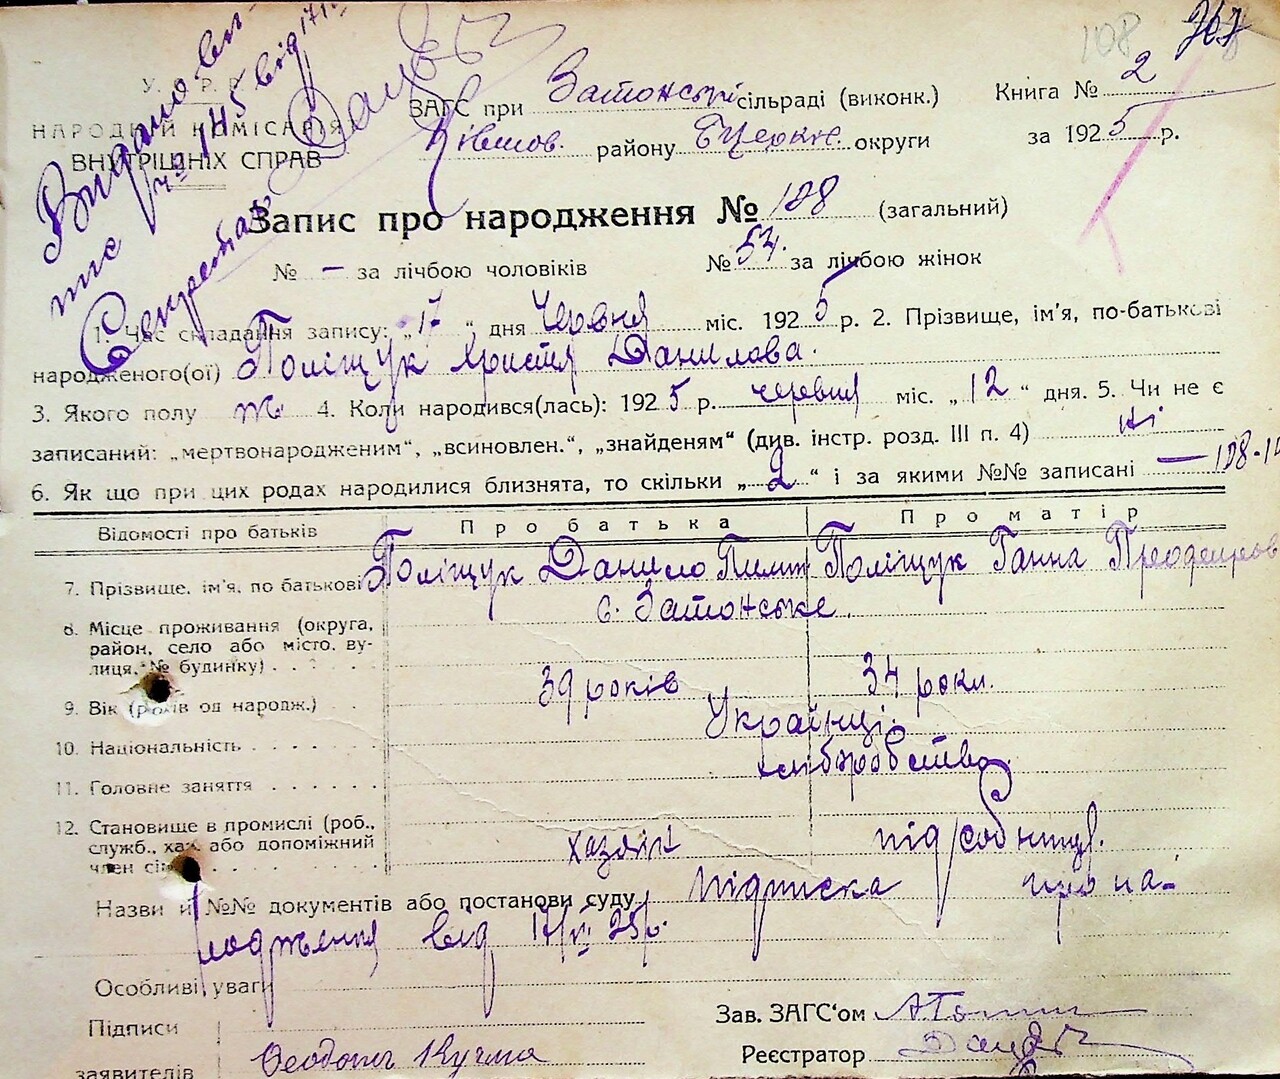 Видано ви-
тяг № 145 від 17/
Секретар
108
У. С. Р. Р.
НАРОДНІЙ КОМІСАРІЯТ
ВНУТРІШНІХ СПРАВ
ЗАГС при Затонській сільраді (виконк.)
району Б Церків. округи
Книга № 2
за 1925 р.
Запис про народження № 108 (загальний)
№ — за лічбою чоловіків № 54. за лічбою жінок
1. Час складання запису: „17“ дня Червня міс. 1925 р. 2. Прізвище, ім'я, по-батькові
народженого(ої) Поліщук Христя Данилова.
3. Якого полу ж. 4. Коли народився(лась): 1925 р. червня міс. „12“ дня. 5. Чи не є
записаний: „мертвонародженим“, „всиновлен.“, „знайденям“ (див. інстр. розд. III п. 4) ні
6. Як що при цих родах народилися близнята, то скільки „2“ і за якими №№ записані — 108-10
Відомості про батьків Про батька Про матір
7. Прізвище, ім'я, по батькові Поліщук Данило Пилип Поліщук Ганна
8. Місце проживання (округа, район, село або місто, вулиця, № будинку) с. Затонське.
9. Вік (років од народж.) 39 років 34 роки.
10. Національність Українці.
11. Головне заняття хліборобство
12. Становище в промислі (роб., служб., хаз. або допоміжний член сім'ї) хазяїн
Назви й №№ документів або постанови суду Підписка про на-
родження від 17/VI 25 р.
Особливі уваги
Підписи
заявителів Феодось Кучма
Зав. ЗАГС'ом
Реєстратор